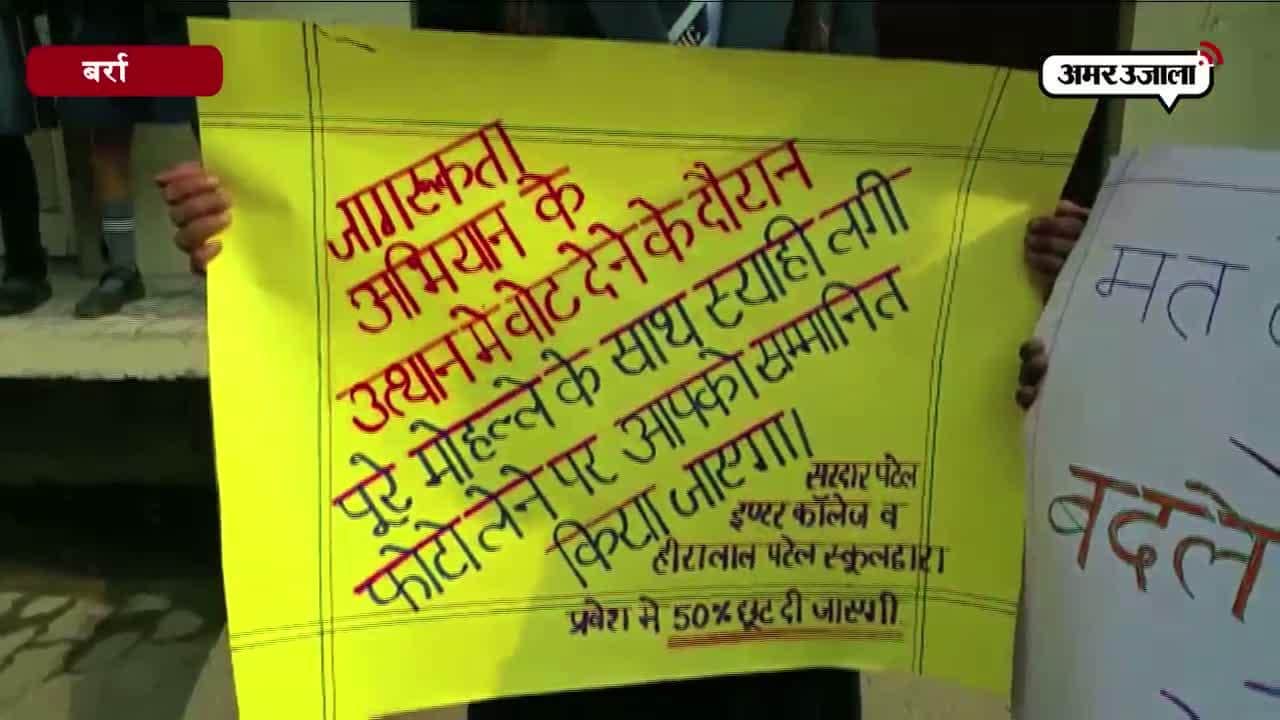 बर्रा
अमर उजाला
जागरूकता
अभियान के
उत्थान में वोट देने के दौरान
पूरे मोहल्ले के साथ स्याही लगी
फोटो लेने पर आपको सम्मानित
किया जाएगा।
सरदार पटेल
इण्टर कॉलेज व
हीरालाल पटेल स्कूल द्वारा
प्रवेश मे 50% छूट दी जाएगी
मत
बदले